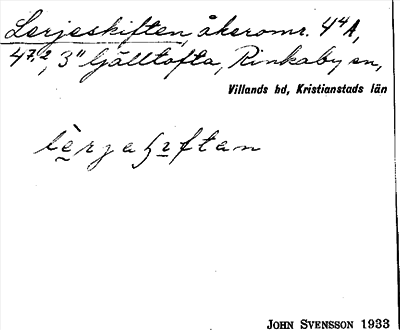 Lerjeskiften, åkeromr. 4⁴A,
4⁷,², 3" Gälltofta, Rinkaby sn,
Villands hd, Kristianstads län
JOHN SVENSSON 1933